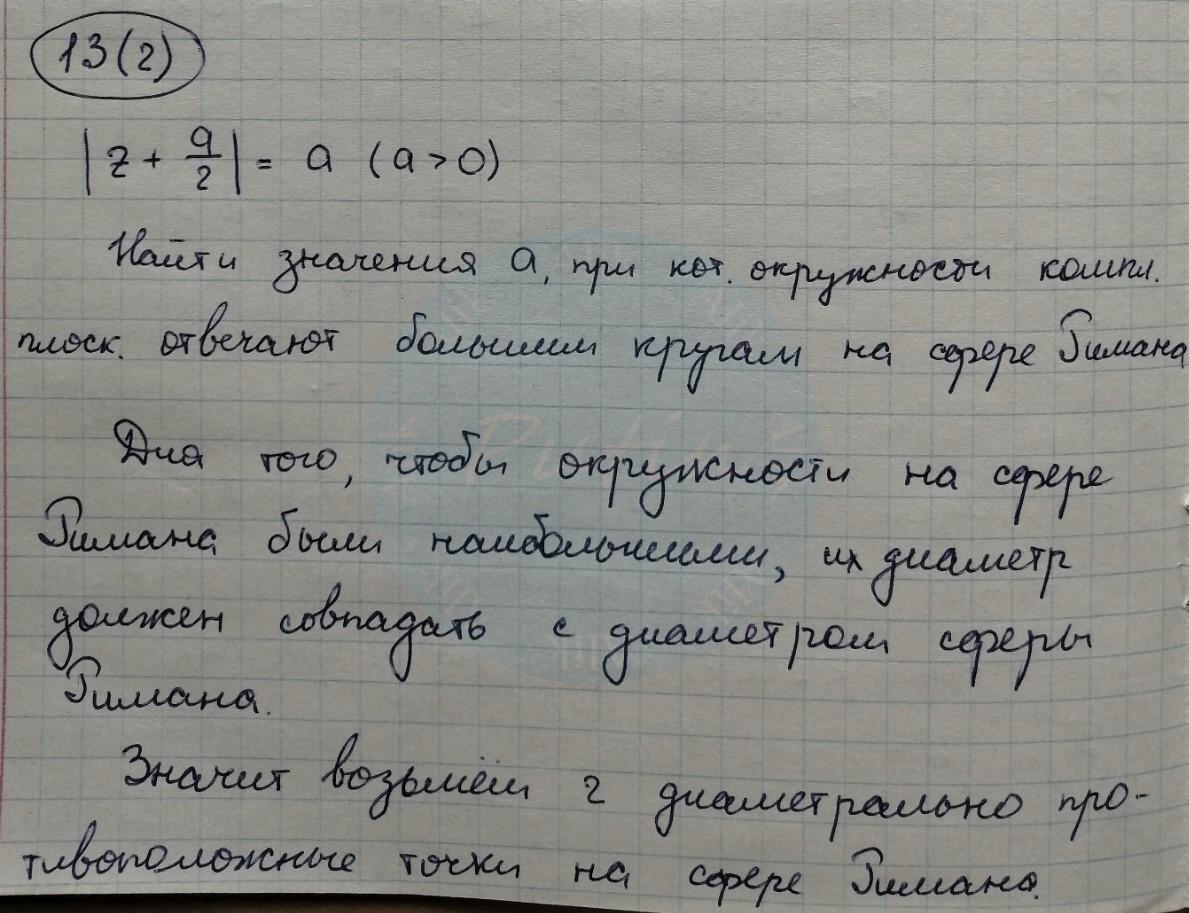 13(2)
|z + a/2| = a (a > 0)
Найти значения a, при кот. окружности компл.
плоск. отвечают большим кругам на сфере Римана
Для того, чтобы окружности на сфере
Римана были наибольшими, их диаметр
должен совпадать с диаметром сферы
Римана.
Значит возьмём 2 диаметрально про-
тивоположные точки на сфере Римана.